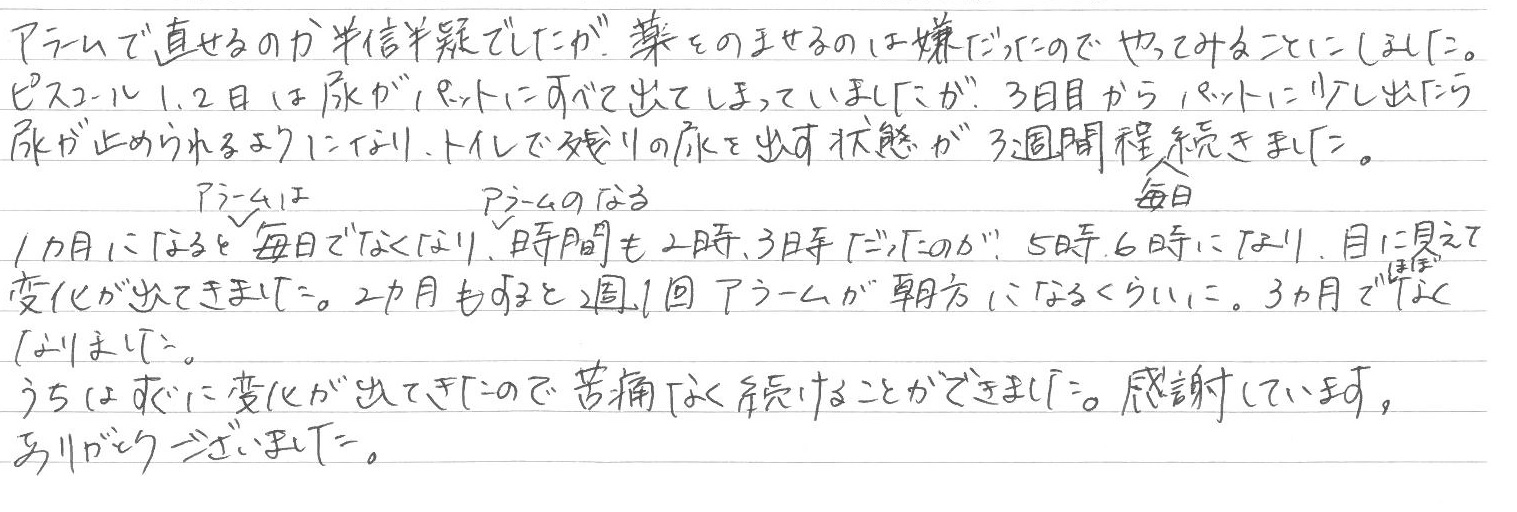 アラームで直せるのか半信半疑でしたが、薬をのませるのは嫌だったのでやってみることにしました。
ピスコール1、2日は尿がパットにすべて出てしまっていましたが、3日目からパットに少し出たら
尿が止められるようになり、トイレで残りの尿を出す状態が3週間程続きました。
アラームは アラームのなる 毎日
1カ月になると毎日でなくなり、時間も2時、3時だったのが、5時、6時になり、目に見えて
ほぼ
変化が出てきました。2カ月もすると2週1回アラームが朝方になるくらいに。3カ月でなく
なりました。
うちはすぐに変化が出てきたので苦痛なく続けることができました。感謝しています。
ありがとうございました。